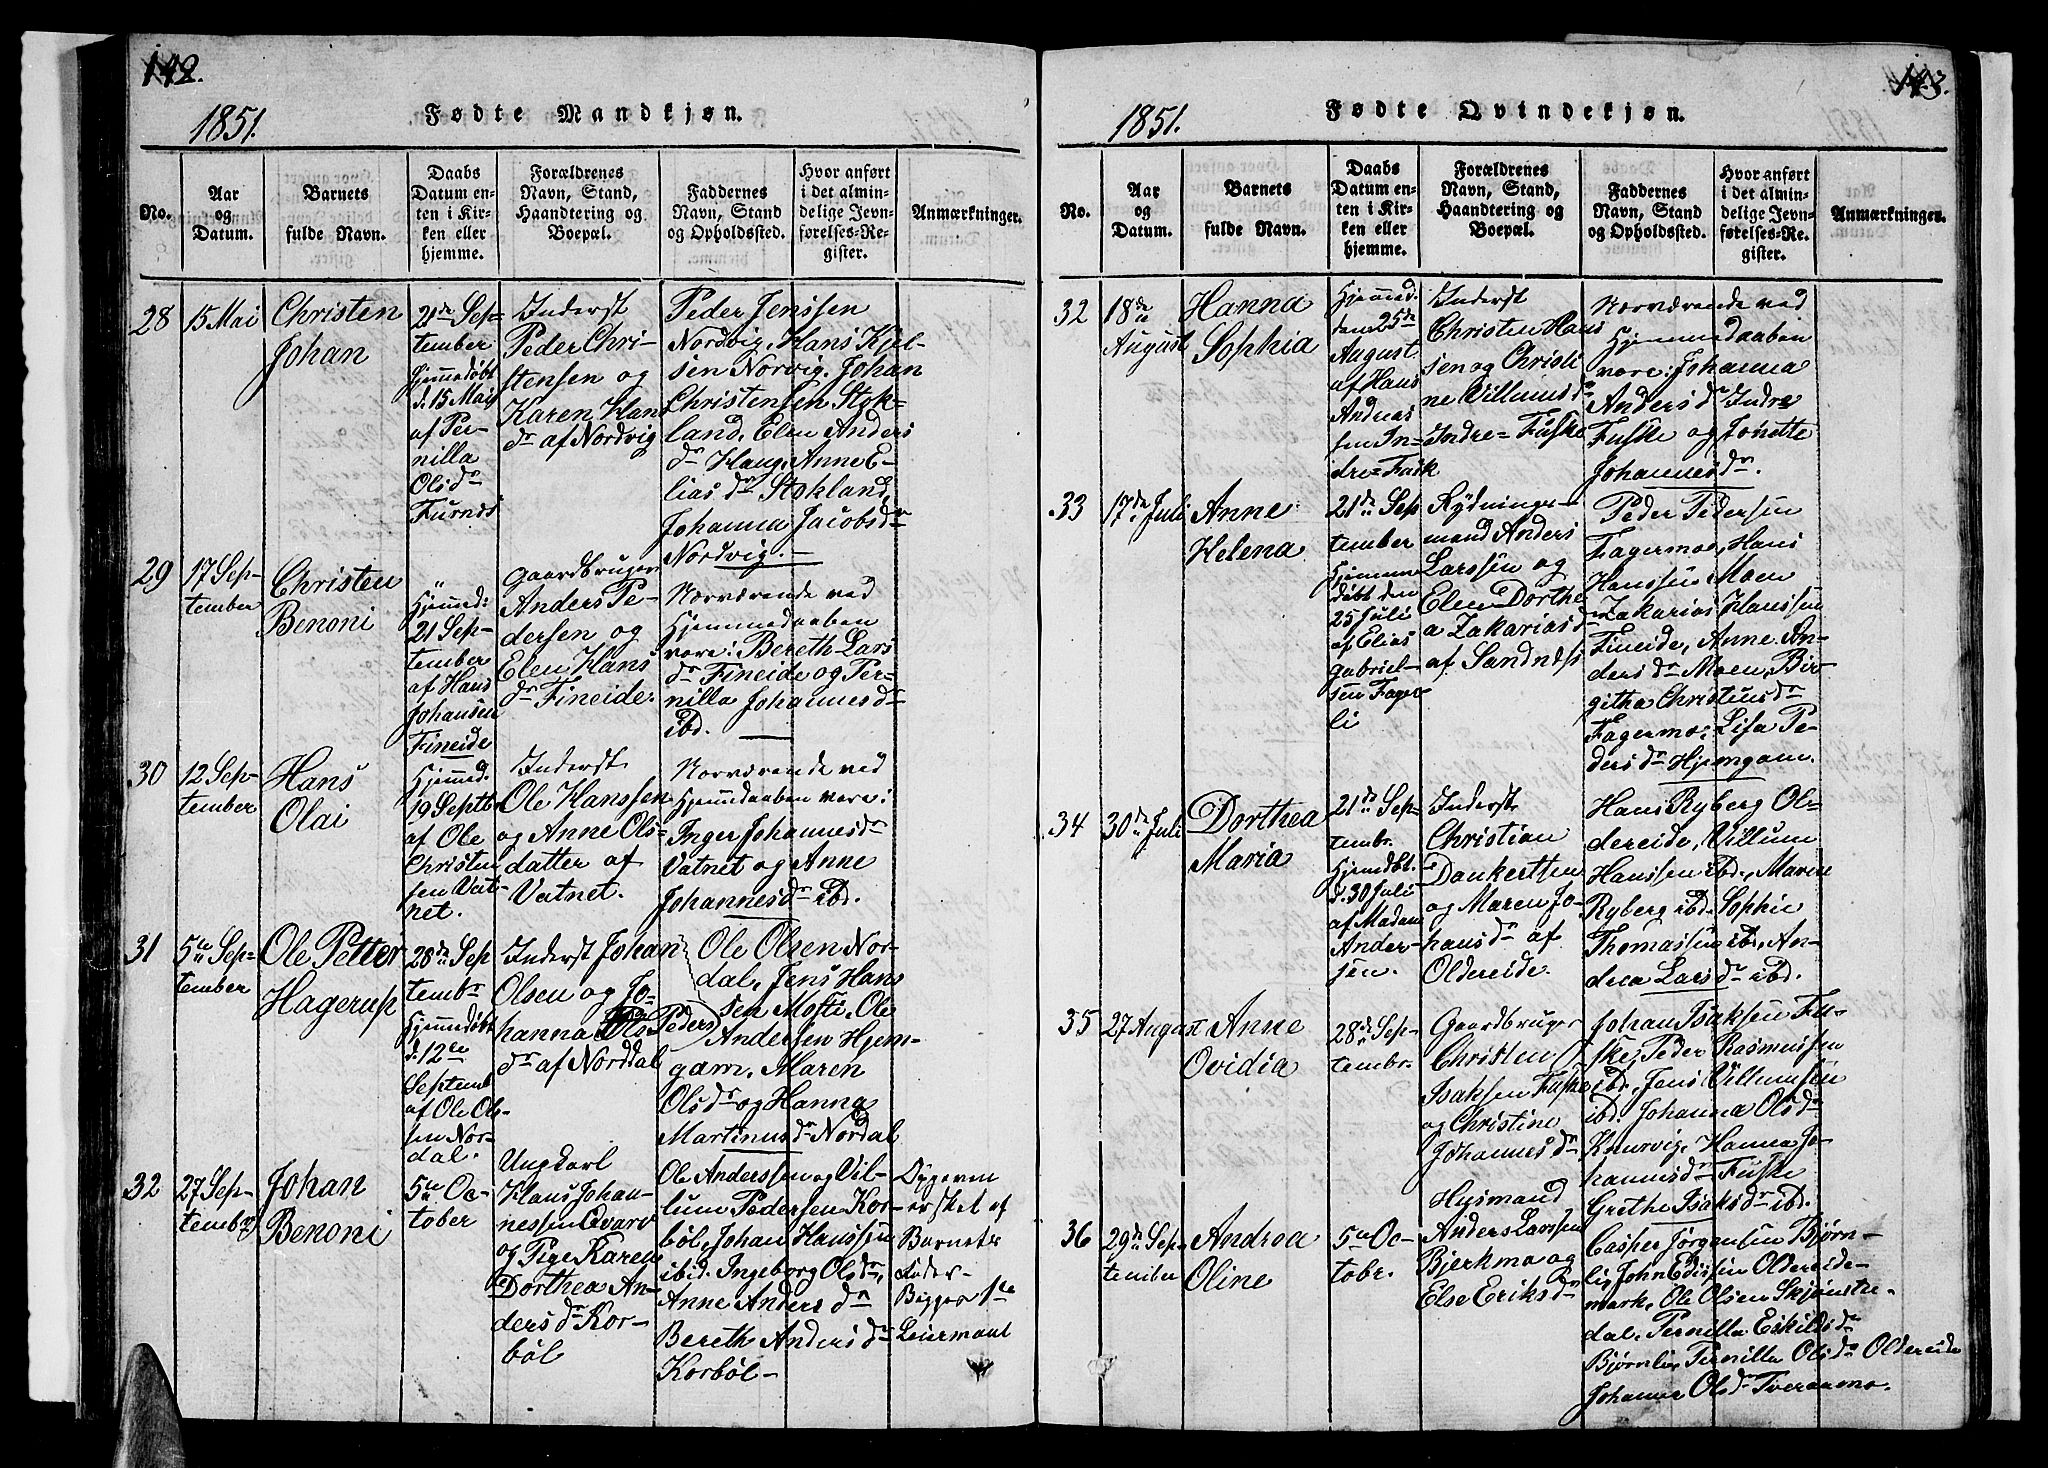 142.
1851.
Fødte Mandkjøn.
No.
Aar
og
Datum.
Barnets
fulde Navn.
Daabs
Datum en-
ten i Kir-
ken eller
hjemme.
Forældrenes
Navn, Stand,
Haandtering og
Boepæl.
Faddernes
Navn, Stand
og Opholdssted.
Hvor anført
i det almin-
delige Jevn-
førelses-Re-
gister.
Anmærkninger.
28
15 Mai
Christen
Johan
21de Sep-
tember
Hjemmedøbt
d. 15 Mai
af Per-
nilla
Olsdr
Furnes
Inderst
Peder Chri-
stensen og
Karen Hans
dr af Nordvig
Peder Jenssen
Nordvig, Hans Kjel-
sen Norvig, Johan
Christensen Stok-
land, Elen Anders
dr Haug, Anne E-
lias dr Stokland,
Johanna Jacobsdr
Nordvig.
29
17 Sep-
tember
Christen
Benoni
"
Hjemmed:
21 Sep-
tember
af Hans
Johansen
Fineide
Gaardbruger
Anders Pe-
dersen og
Elen Hans
dr Fineide.
Nærværende ved
Hjemmedaaben
vare: Bereth Lars
dr Fineide og Per-
nilla Johannesdr
ibd.
30
12 Sep-
tember
Hans
Olai
Hjemmed.
19 Septbr
af Ole
Christen
sen Vat-
net.
Inderst
Ole Hanssen
og Anne Ols-
datter af
Vatnet.
Nærværende ved
Hjemdaaben vare:
Inger Johannesdr
Vatnet og Anne
Johannesdr ibd.
31
5te Sep-
tember
Ole Petter
Hagerup
28de Sep
tembr
Hjemmedøbt
d. 12te
Septemb
af Ole Ol-
sen Nor-
dal.
Inderst Johan
Olsen og Jo-
hanna Peders
dr af Norddal
Ole Olsen Nor-
dal, Jens Hans
sen Mofti, Ole
Andersen Hjem-
gam, Maren
Olsdr og Hanna
Martinusdr Nordal
32
27 Sep-
tembr
Johan
Benoni
5te Oc-
tober
Ungkarl
Hans Johan-
nessen Qvarv
og Pige Karen
Dorthea An-
dersdr Kor-
bøl
Ole Anderssen og Vil-
lum Pedersen Kor-
bøl, Johan Hanssen
ibid. Ingeborg Olsdr,
Anne Anders dr
Bereth Anders dr
Korbøl-
Opgivne
ersket af
Barnets
Fader
Begges 1ste
Leiermaal
143.
1851.
Fødte Qvindekjøn.
No.
Aar
og
Datum.
Barnets
fulde Navn.
Daabs
Datum en-
ten i Kir-
ken eller
hjemme.
Forældrenes
Navn, Stand,
Haandtering og
Boepæl.
Faddernes
Navn, Stand
og Opholdssted.
Hvor anført
i det almin-
delige Jevn-
førelses-Re-
gister.
Anmærkninger.
32
18de
August
Hanna
Sophia
Hjemmed.
den 25de
August
af Hans
Andreas
sen In-
dre=Fusk
Inderst
Christen Han
sen og Christi
ne Villumsdr
Indre=Fuske
Nærværende ved
Hjemmedaaben
vare: Johanna
Anders dr Indre
Fuske og Jonette
Johannesdr.
33
17de Juli
Anne
Helena
21de Sep
tember
Hjemme
døbt den
25 Juli
af Elias
Gabriel-
sen Fager-
li
Rydnings-
mand Anders
Larssen og
Elen Dorthe
a Zakariasdr
af Sandnæs
Peder Pedersen
Fagermoe, Hans
Hanssen Moen
Zakarias Hanssen
Fineide, Anne An-
dersdr Moen, Bir-
githa Christensdr
Fagermo, Lisa Pe-
dersdr Hjemgam.
34
30de Juli
Dorthea
Maria
21de Sep-
tembr.
Hjemdbt.
d. 30 Juli
af Madam
Ander-
sen.
Inderst
Christian
Dankertsen
og Maren Jo-
hansdr af
Oldereide.
Hans Ryberg Ol-
dereide, Villum
Hanssen ibd., Maren
Ryberg ibd. Sophie
Thomassen ibd., An-
drea Larsdr ibd.
35
27 August
Anne
Ovidia
28de Sep-
tembr.
Gaardbruger
Christen
Isaksen Fuske
og Christine
Johannesdr
Johan Isaksen Fu-
ske, Peder Rasmussen
ibd, Jens Villumsen
ibd. Johanna Olsdr
Knurvig, Hanna Jo-
hannesdr Fuske
Grethe Isaksdr ibd.
36
29de Sep-
tember
Androa
Oline
5te Oc-
tobr.
Husmand
Anders Larssen
Bjerkmo og
Else Eriksdr
Casper Jørgensen Bjørn-
li, John Edissen Oldereide-
mark, Ole Olsen Skjønste-
dal, Pernilla Eskildsdr
Bjørnli, Pernilla Olsdr Oldereide
Johanna Olsdr Tveraamo.